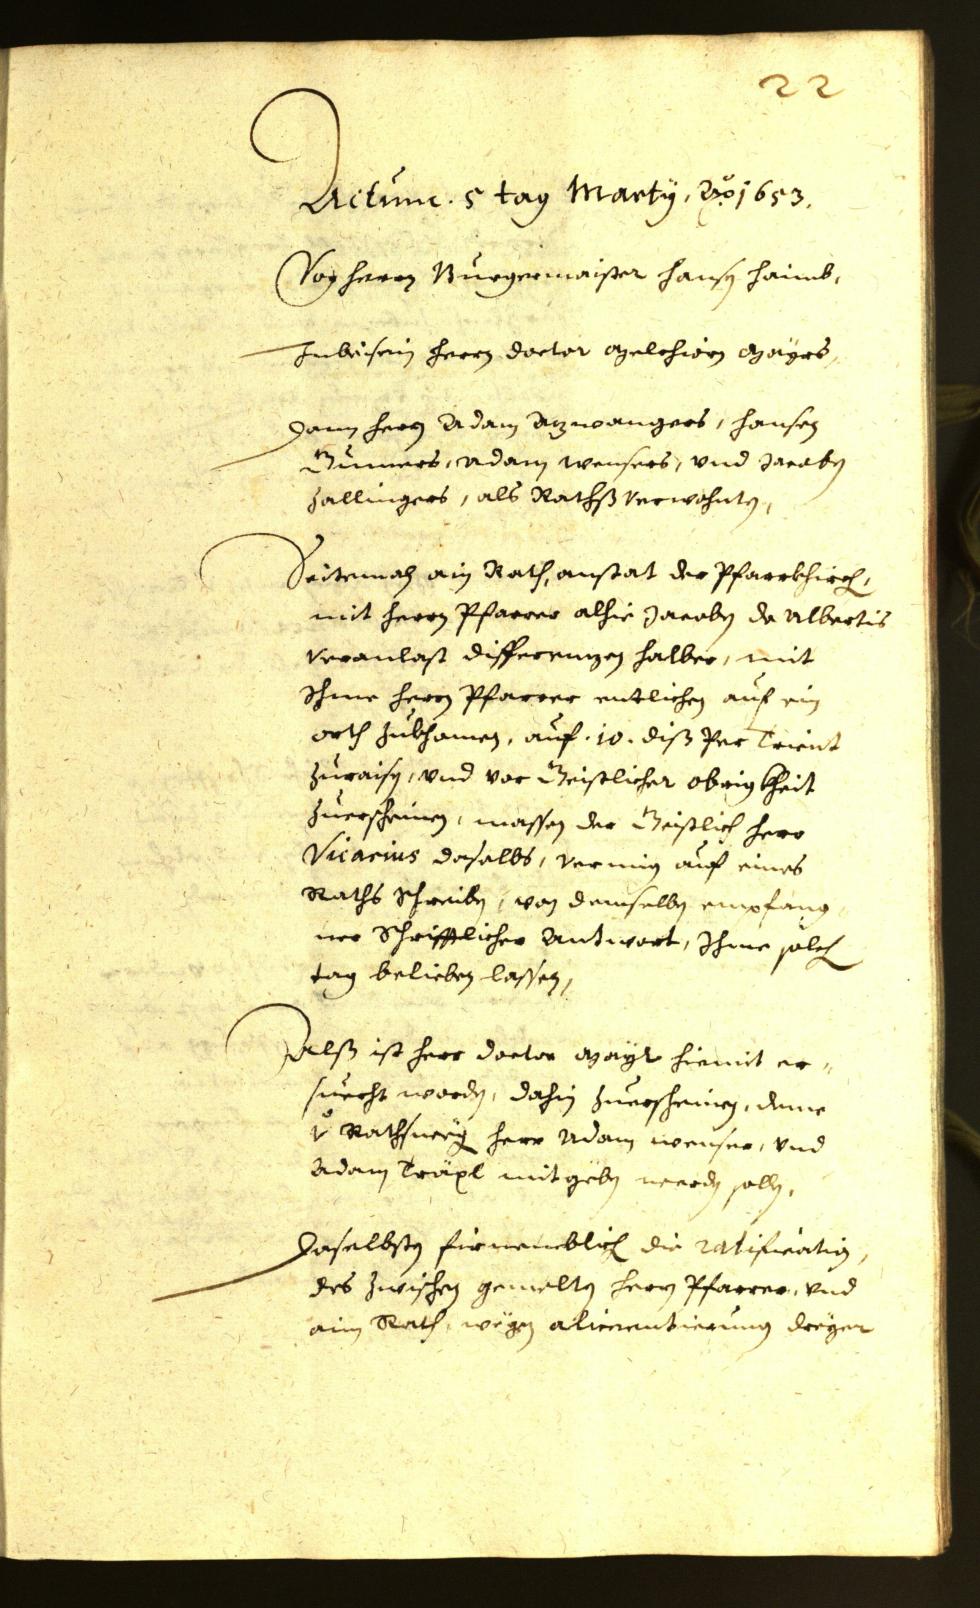 22
Actum. 5 tag Martÿ, Ao 1653.
Von herrn Burgermaister Hansn Haimb,
Inbeisein herrn doctor Melchiorn Mäyrs,
Dann herrn Adam Azwangers, Hansen
Gumers, Adam Wensers, vnd Jacobn
Zallingers, als Rathß Verwohnte,
Seitemaln ain Rath, anstat der Pfarrkhirch,
mit herrn Pfarrer alhie Jacoben de Albertis
veranlast differenzen halber, mit
Ihme herrn Pfarrer entlichen auf ein
orth zukhomen, auf .10. diß per Trient
zuraisn, vnd vor Geistlicher obrigkheit
zuerscheinen, massen der Geistlich herr
Vicarius daselbs, vermig auf eines
Raths schreiben, von demselben empfang
ner Schrifftlicher Antwort, Ihme solch
tag belieben lassen,
Alß ist herr doctor Mäyr hiemit er¬
suecht worden, dahin zuerscheinen, deme
herr Adam Wenser, vnd
Adam Träxl mitgeben werden sollen,
Daselbsten fürnemblich die ratification,
des zwischen gemelten herrn Pfarrer, vnd
aim Rath, wegen alimentierung dreÿer